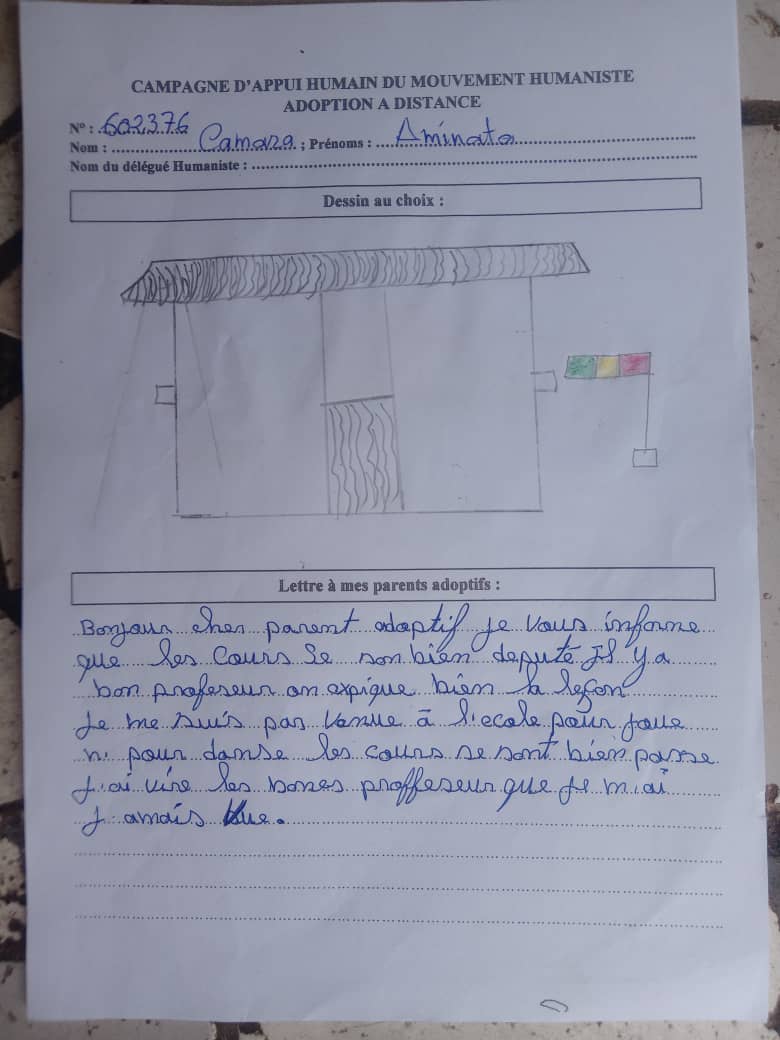 CAMPAGNE D'APPUI HUMAIN DU MOUVEMENT HUMANISTE
ADOPTION A DISTANCE
N° : 602376
Nom : Camara ; Prénoms : Aminata
Nom du délégué Humaniste :
Dessin au choix :
Lettre à mes parents adoptifs :
Bonjour cher parent adoptif je vous informe
que les cours Se son bien deputé Il y a
bon profeseur on expique bien la leçon
Je me suis pas venue à l'ecole pour joue
ni pour danse les cours se sont bien passe
J'ai vire les bones proffeseur que je m'ai
J amais vue.